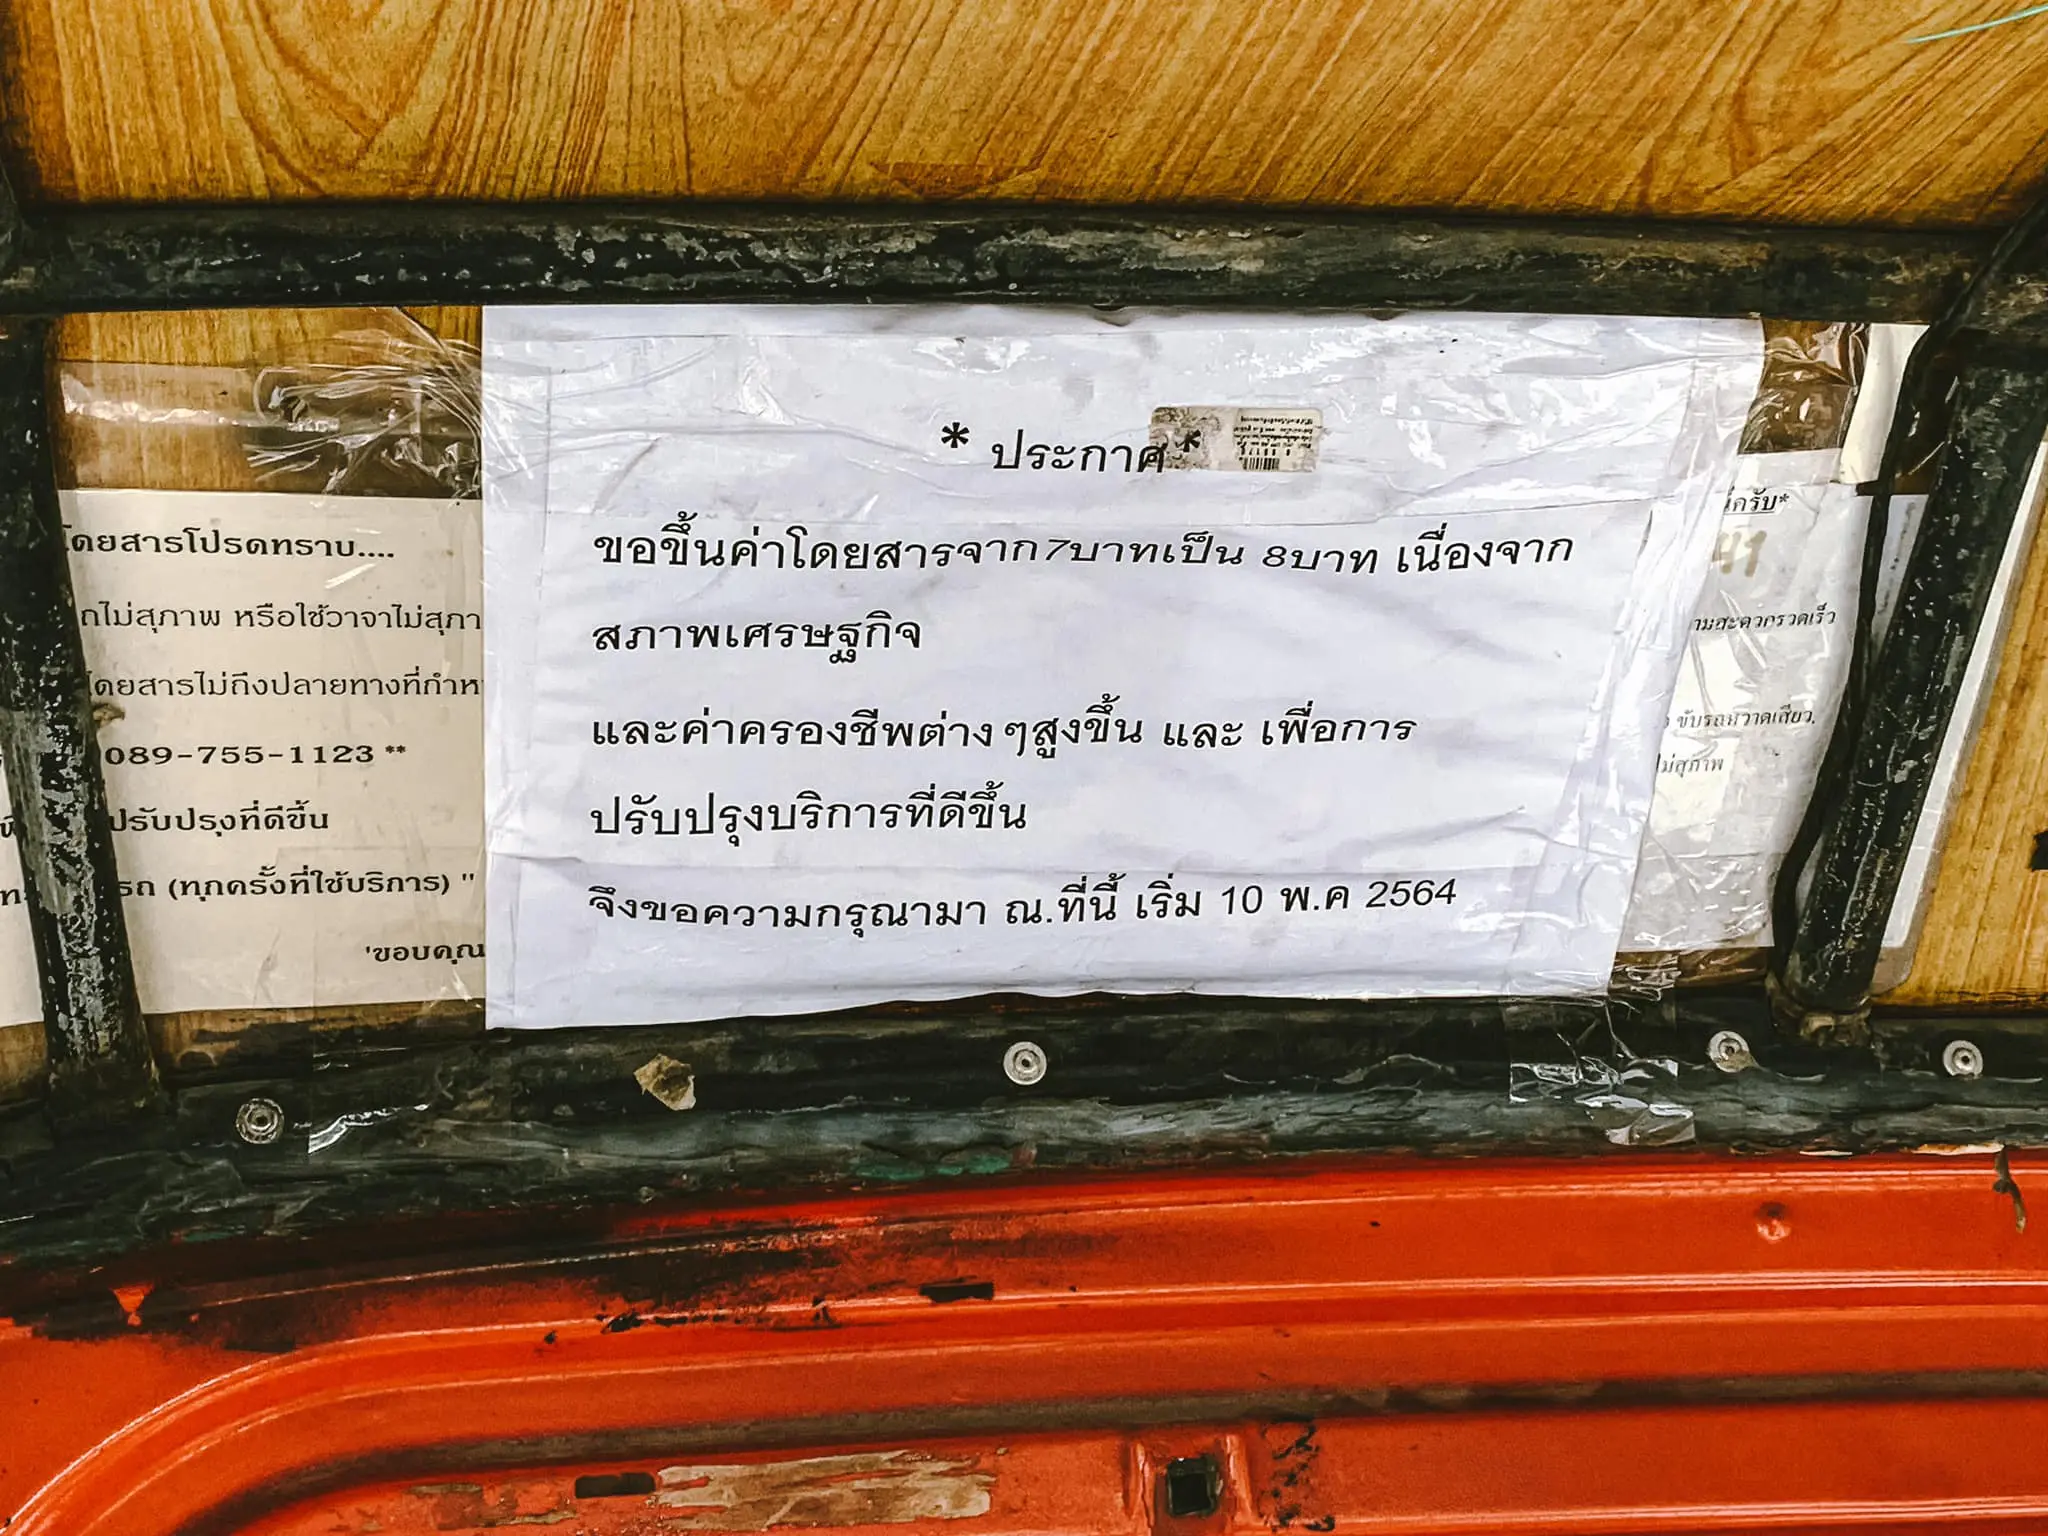 * ประกาศ *
ขอขึ้นค่าโดยสารจาก7บาทเป็น 8บาท เนื่องจาก
สภาพเศรษฐกิจ
และค่าครองชีพต่างๆสูงขึ้น และ เพื่อการ
ปรับปรุงบริการที่ดีขึ้น
จึงขอความกรุณามา ณ.ที่นี้ เริ่ม 10 พ.ค 2564
โดยสารโปรดทราบ....
ไม่สุภาพ หรือใช้วาจาไม่สุภา
โดยสารไม่ถึงปลายทางที่กำห
089-755-1123 **
ปรับปรุงที่ดีขึ้น
รถ (ทุกครั้งที่ใช้บริการ) "
'ขอบคุณ
ครับ*
ามสะดวกรวดเร็ว
ขับรถหวาดเสียว,
ไม่สุภาพ